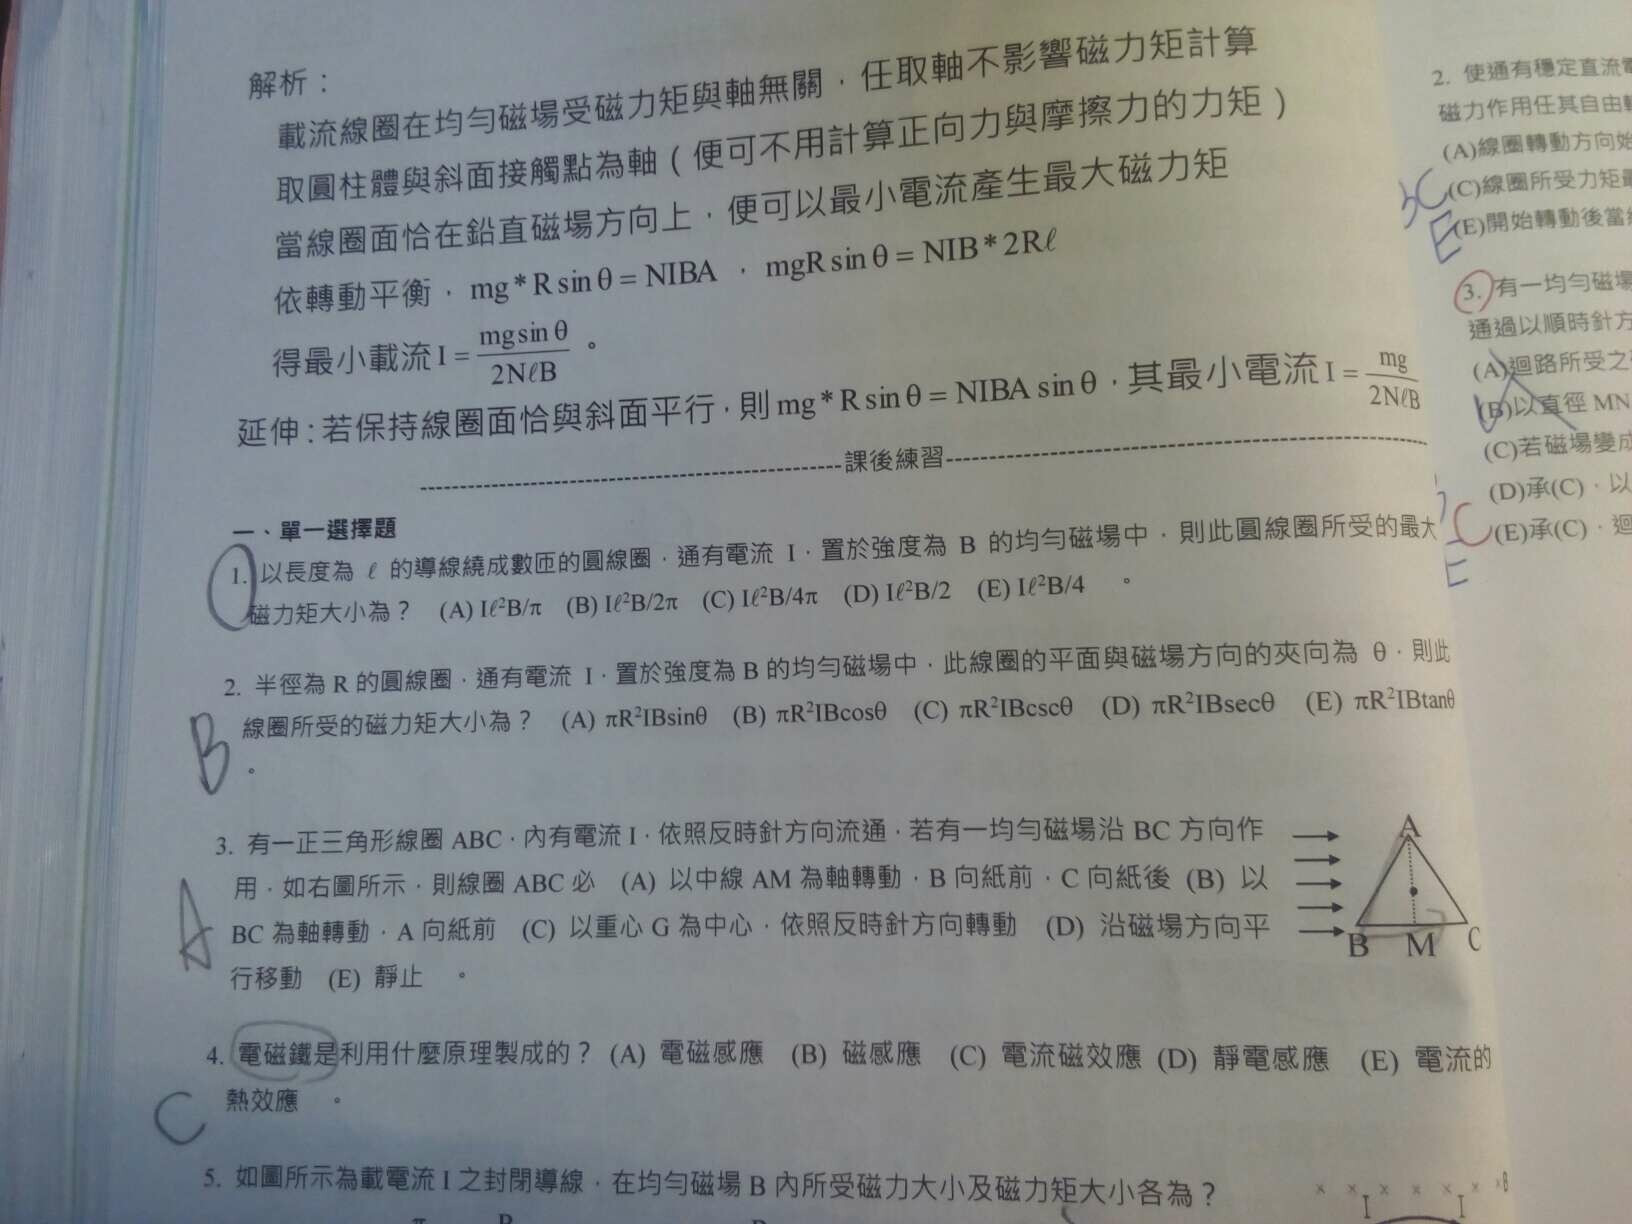 解析：
載流線圈在均勻磁場受磁力矩與軸無關，任取軸不影響磁力矩計算
取圓柱體與斜面接觸點為軸（便可不用計算正向力與摩擦力的力矩）
當線圈面恰在鉛直磁場方向上，便可以最小電流產生最大磁力矩
依轉動平衡，mg*R sin θ = NIBA ，mgR sin θ = NIB*2Rℓ
得最小載流 I = mg sin θ / 2NℓB 。
延伸：若保持線圈面恰與斜面平行，則 mg*R sin θ = NIBA sin θ，其最小電流 I = mg / 2NℓB
課後練習
一、單一選擇題
1. 以長度為 ℓ 的導線繞成數匝的圓線圈，通有電流 I，置於強度為 B 的均勻磁場中，則此圓線圈所受的最大
磁力矩大小為？ (A) Iℓ²B/π (B) Iℓ²B/2π (C) Iℓ²B/4π (D) Iℓ²B/2 (E) Iℓ²B/4 。
2. 半徑為 R 的圓線圈，通有電流 I，置於強度為 B 的均勻磁場中，此線圈的平面與磁場方向的夾向為 θ，則此
線圈所受的磁力矩大小為？ (A) πR²IBsinθ (B) πR²IBcosθ (C) πR²IBcscθ (D) πR²IBsecθ (E) πR²IBtanθ
。
B
3. 有一正三角形線圈 ABC，內有電流 I，依照反時針方向流通，若有一均勻磁場沿 BC 方向作
用，如右圖所示，則線圈 ABC 必 (A) 以中線 AM 為軸轉動，B 向紙前，C 向紙後 (B) 以
BC 為軸轉動，A 向紙前 (C) 以重心 G 為中心，依照反時針方向轉動 (D) 沿磁場方向平
行移動 (E) 靜止 。
A
A
B M C
4. 電磁鐵是利用什麼原理製成的？ (A) 電磁感應 (B) 磁感應 (C) 電流磁效應 (D) 靜電感應 (E) 電流的
熱效應 。
C
5. 如圖所示為載電流 I 之封閉導線，在均勻磁場 B 內所受磁力大小及磁力矩大小各為？
× × × × × × ×B
I I
2. 使通有穩定直流電
磁力作用任其自由轉
(A)線圈轉動方向始
(C)線圈所受力矩最
(E)開始轉動後當線
C
E
3. 有一均勻磁場
通過以順時針方
(A)迴路所受之
(B)以直徑 MN
(C)若磁場變成
(D)承(C)，以
(E)承(C)，迴
C
E